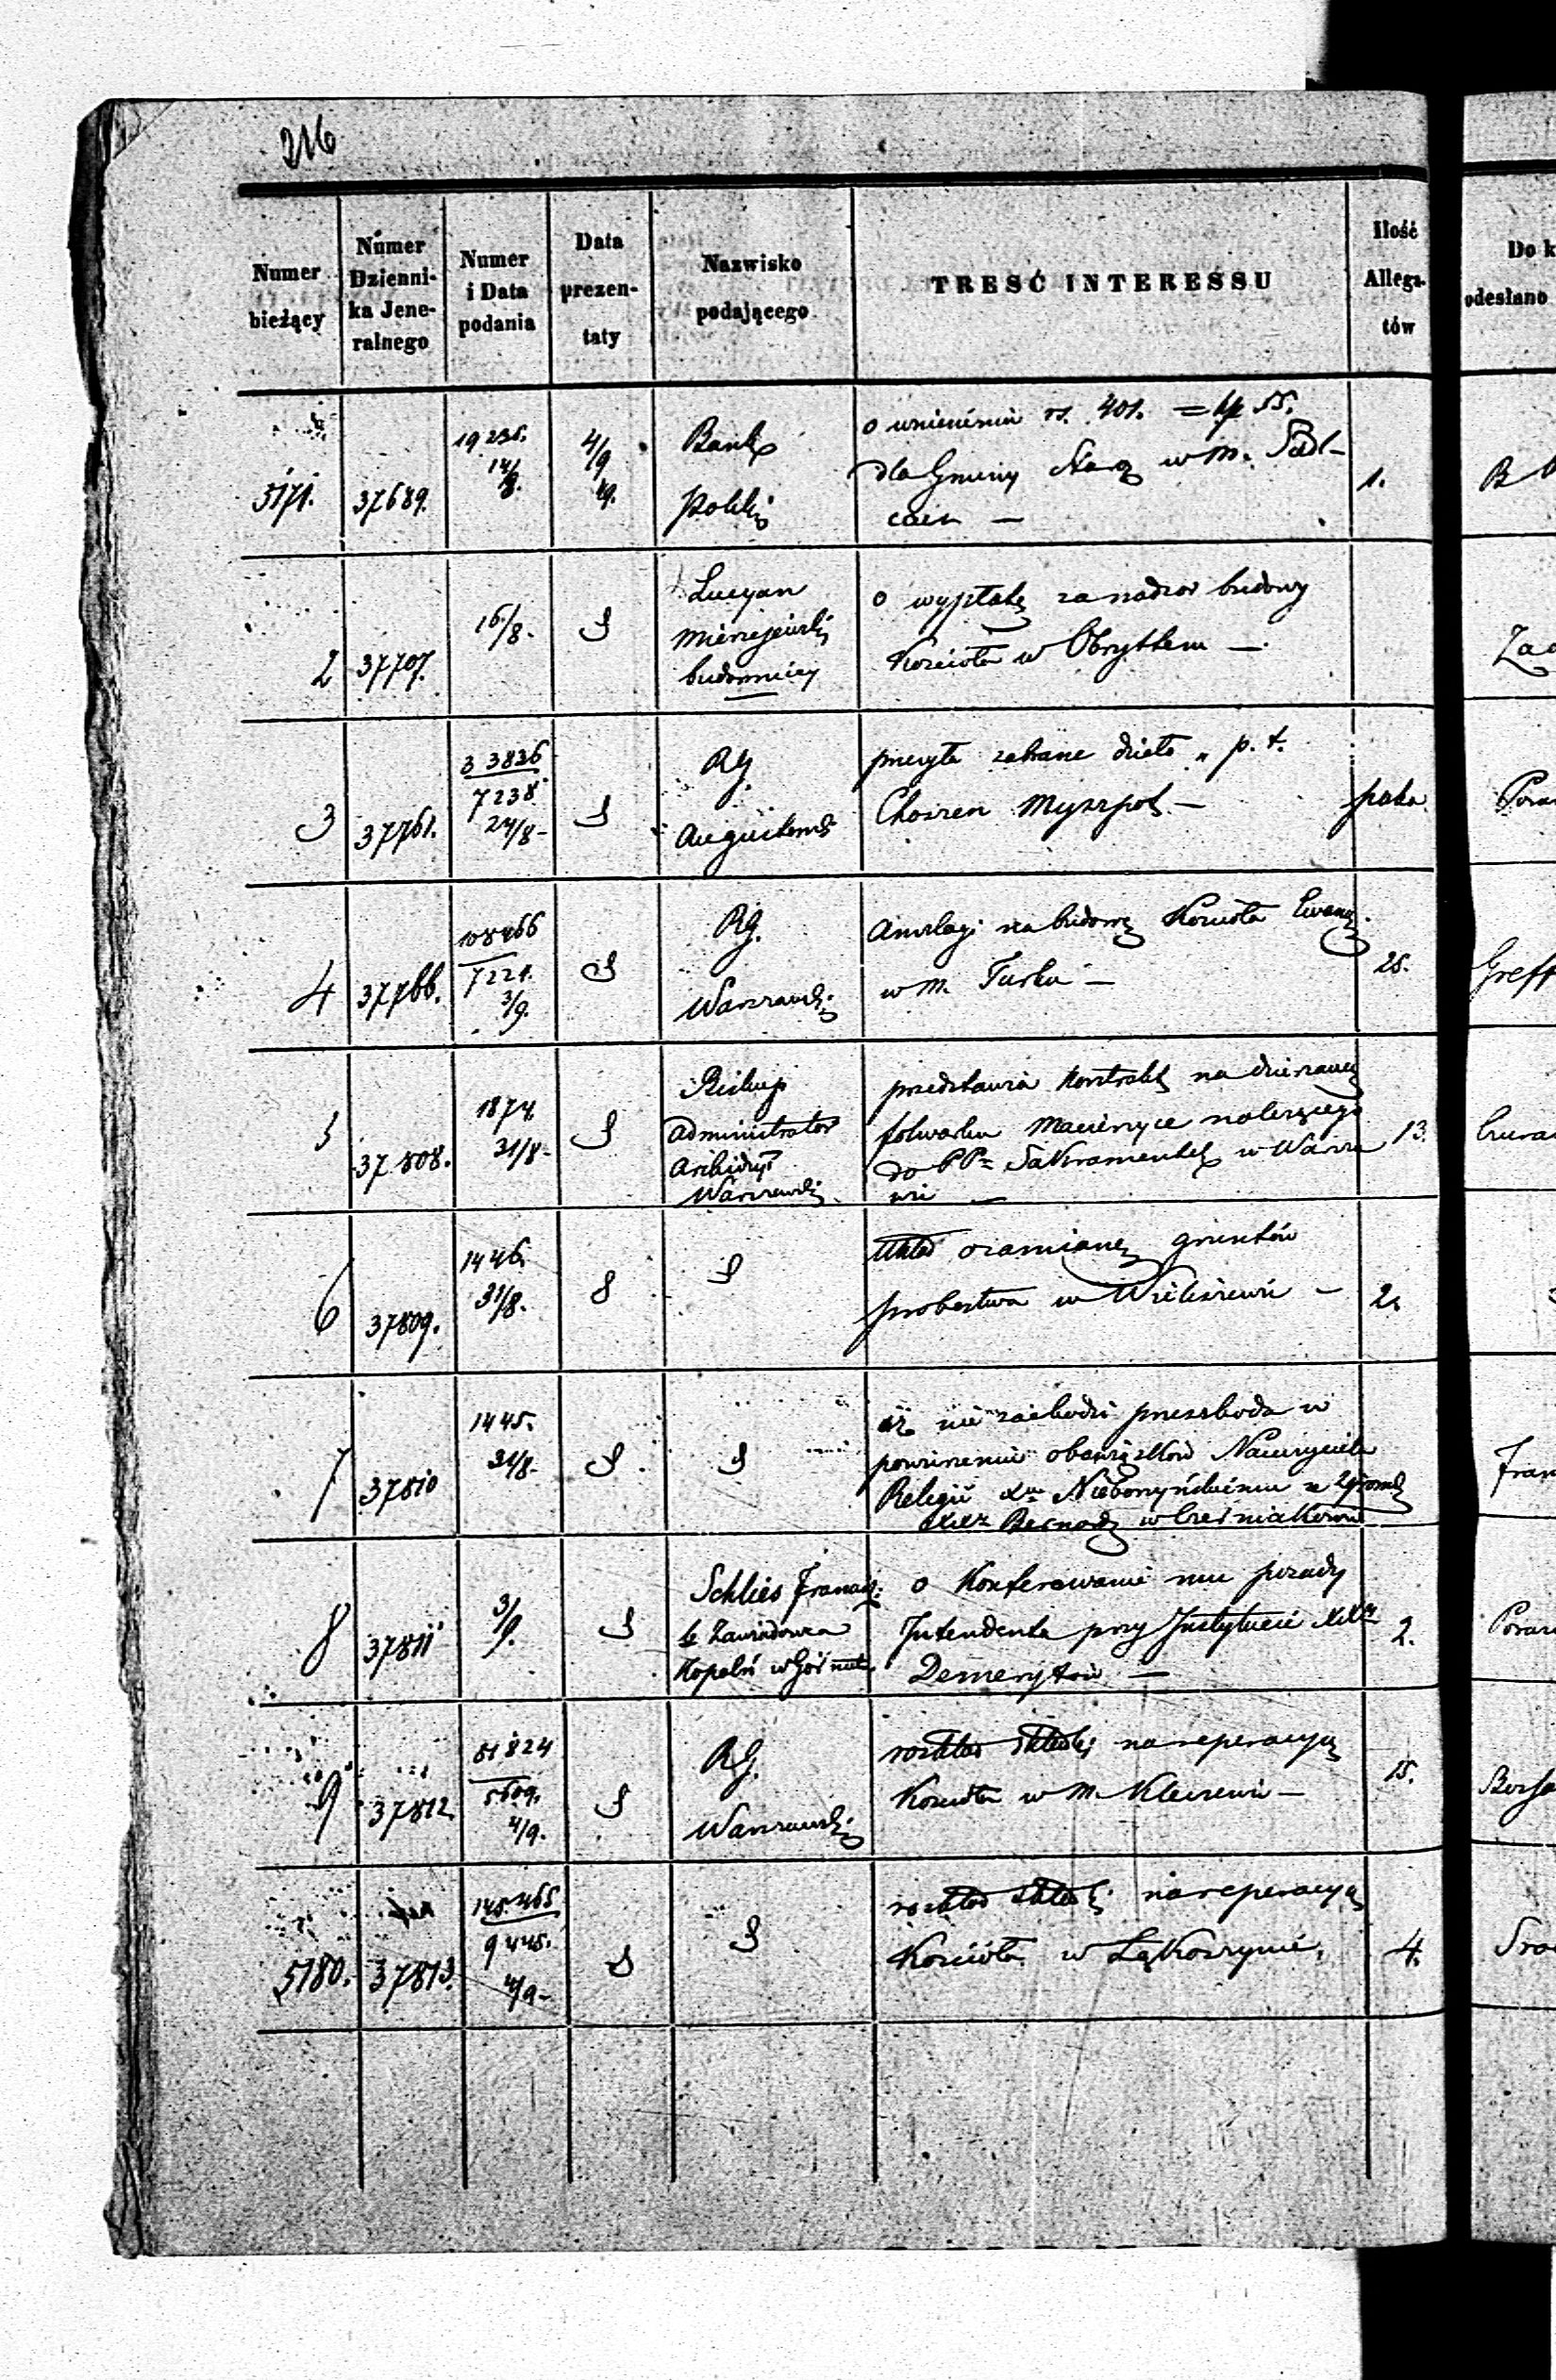 216
Numer bieżący | Numer Dzienni-ka Jene-ralnego | Numer i Data podania | Data prezen-taty | Nazwisko podającego | TRESĆ INTERESSU | Ilość Allega-tów | Do k odesłano
5171. | 37689. | 19235. 14/8. | 4/9 49. | Bank Polski | o wniesieniu rs. 401. = kp 55.
dla Gminy w m.
1. | B
2 | 37707. | 16/8. | S | Lucyan Mierzejewski budowniczy | o wypłatę za nadzor budowy
Kościoła w Obrytem — | Zac
3 | 37761. | 33836 7238 24/8- | S | RG. Augustows | przesyła zabrane dzieło „ p. t.
Choszen Myszpot — | paka. | Poraw
4 | 37766. | 108466 7221. 3/9. | S | RG. Warszawski | Anszlagi na budowę Kościoła Ewang.
w m. Turku — | 25. | Greff
5 | 37808. | 1874. 31/8- | S | Biskup administrator Archidyec Warszawski | przedstawia Kontrakt na dzierżawę
folwarku należącego
do PPn Sakramentek w Warsza
wie — | 13.
6 | 37809. | 1446. 31/8. | S | S | Układ o zamianę gruntów
probostwa w Wieliszewie — | 2.
7 | 37810 | 1445. 31/8- | S | S | iż nie zachodzi przeszkoda w
powierzeniu obowiązków Nauczyciela
Religii Xu ze Zgromadz
XXz Bernardy w | Fran
8 | 37811 | 3/9. | S | Schlies Franc: Zawiadowca Kopalń w | o Konferowanie mu posady
Intendenta przy Instytucie XXzy
Demerytów — | 2. | Poraw
9 | 37812 | 51824 5609. 4/9. | S | RG. Warszawski | rozkład składki na reperacyą
Kościoła w m. Kleczewie — | 15.
5180. | 37813. | 145.465 9445. 4/9- | S | S | rozkład składki na reperacyą
Kościoła w Łąkoszynie, | 4.